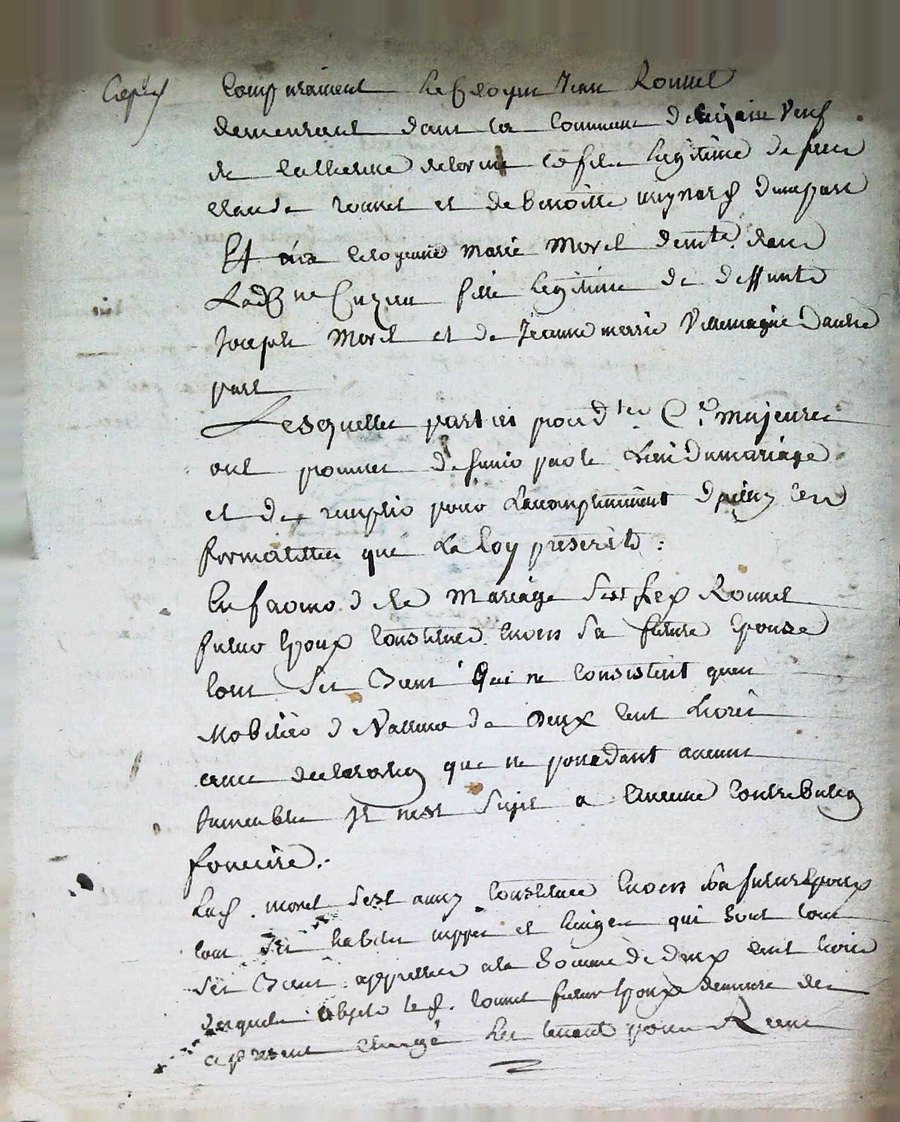 Comparaient Le Citoyen Jean Rounet
demeurant dans la Commune de veuf
de Catherine delorme et fils Legitime de feu
claude rounet et de Benoitte d'une part
Et la Citoyenne Marie Morel demte dans
Ladte me Cuzieu fille Legitime de deffunts
Joseph Morel et de Jeanne marie Villemagne d'autre
part
Lesquelles parties procedtes Cme majeures
ont promis de s'unir par le Lien du mariage
et de remplir pour L'accomplissement d'iceluy les
formalittes que La loy prescrits :
En faveur du de Mariage s'est Le Rounet
futur Epoux Constitué Envers Sa future Epouse
tout Ses Biens Qui ne Consistent qu'en
Mobiliers de Valleur de Deux Cent Livres
avec declaration que ne possedant aucun
Immeuble Il n'est Sujet a Aucune Contribution
fonciere.
La morel s'est aussy Constituee Envers Son futur Epoux
tous Ses habits nippes et linges qui Sont tous
Ses Biens appretiee a la Somme de deux Cent Livres
desquels objets le rounet futur Epoux demeure des
a present chargé Les tenant pour Recus